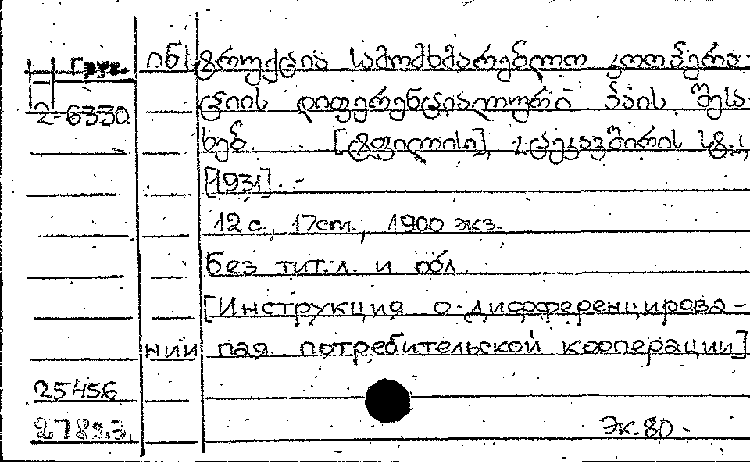 Груз. ინსტრუქცია სამომხმარებლო კოოპერა-
2-6330 ციის დიფერენციალური პაის შესა-
ხებ. [ტფილისი],
[1931].-
12 с., 17см., 1900 экз.
без тит. л. и обл.
[Инструкция о дифференцирова-
нии пая потребительской кооперации]
25456
Эк. 80-